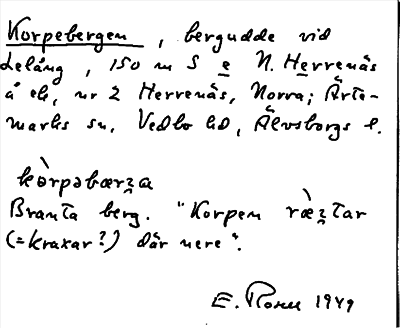 Korpebergen, bergudde vid
Lelång, 150 m S e N. Herrenäs
å ek, nr 2 Herrenäs, Norra; Ärte-
marks sn, Vedbo hd, Älvsborgs l.
kòrpəbærʒa
Branta berg. "Korpen ræ̀ʒtar
(=kraxar?) där nere".
E. 1949